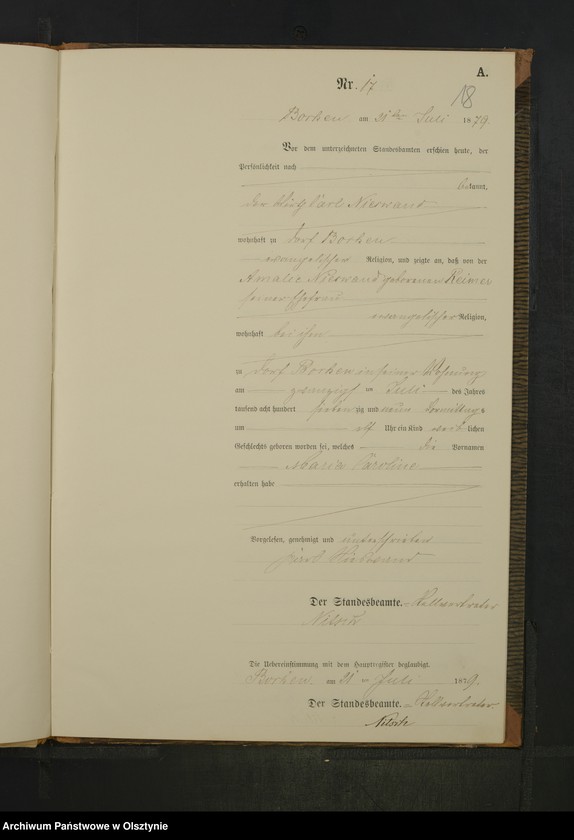 A.
18
Nr. 17
Borken am 21ten Juli 1879
Vor dem unterzeichneten Standesbeamten erschien heute, der
Persönlichkeit nach
bekannt,
der Carl Nieswand
wohnhaft zu Dorf Borken
evangelischer Religion, und zeigte an, daß von der
Amalie Nieswand geborenen Reimer
seiner Ehefrau
evangelischer Religion,
wohnhaft bei ihm
zu Dorf Borken in seiner Wohnung
am zwanzigsten Juli des Jahres
tausend acht hundert siebenzig und neun Vormittags
um elf Uhr ein Kind weiblichen
Geschlechts geboren worden sei, welches die Vornamen
Maria Caroline
erhalten habe
Vorgelesen, genehmigt und unterschrieben
Carl Nieswand
Der Standesbeamte. Stellvertreter
Die Uebereinstimmung mit dem Hauptregister beglaubigt.
Borken am 21ten Juli 1879.
Der Standesbeamte. Stellvertreter.
Archiwum Państwowe w Olsztynie